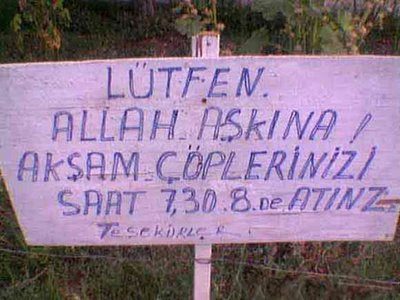 LÜTFEN.
ALLAH AŞKINA !
AKŞAM ÇÖPLERİNİZİ
SAAT 7,30.8.de ATINZ
TEŞEKÜRLER.